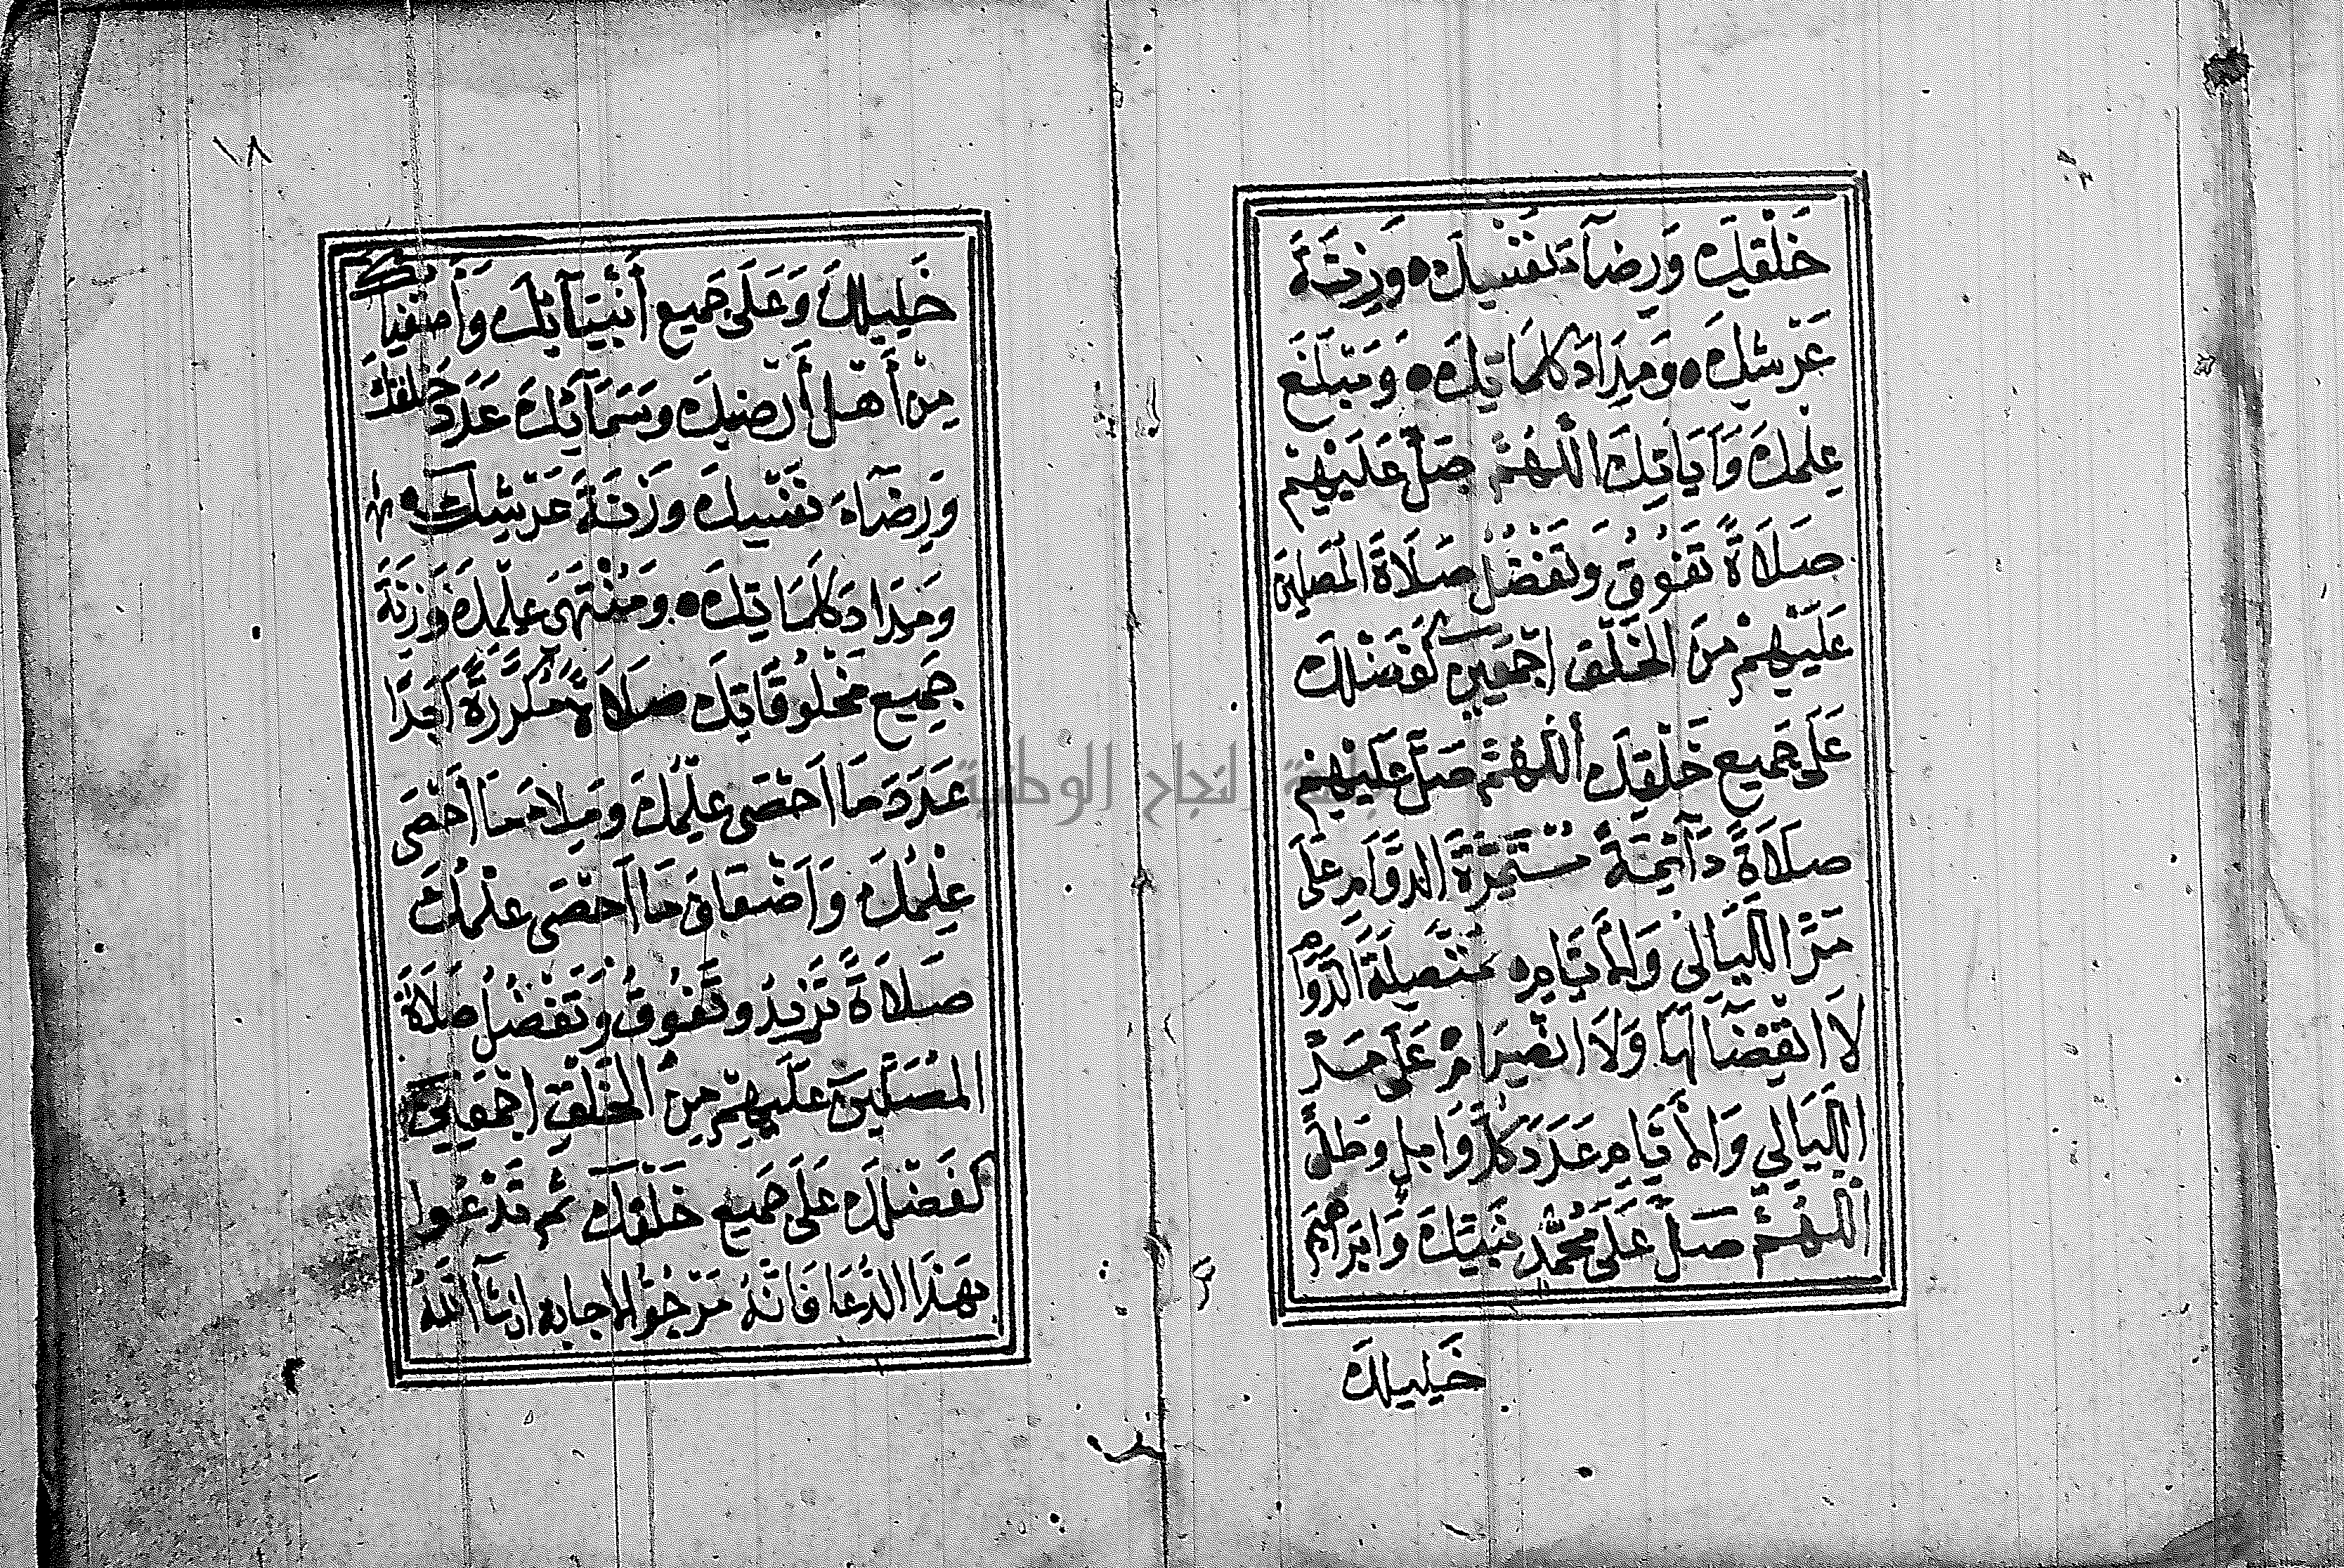 خَلْقِكَ وَرِضَآءَ نَفْسِكَ وَزِنَةَ
عَرْشِكَ وَمِدَادَ كَلِمَاتِكَ وَمَبْلَغَ
عِلْمِكَ وَآيَاتِكَ اللَّهُمَّ صَلِّ عَلَيْهِمْ
صَلَاةً تَفُوقُ وَتَفْضُلُ صَلَاةَ الْمُصَلِّينَ
عَلَيْهِمْ مِنَ الْخَلْقِ اَجْمَعِينَ كَفَضْلِكَ
عَلَى جَمِيعِ خَلْقِكَ اللَّهُمَّ صَلِّ عَلَيْهِمْ
صَلَاةً دَآئِمَةً مُسْتَمِرَّةَ الدَّوَامِ عَلَى
مَرِّ اللَّيَالِي وَالْأَيَّامِ مُتَّصِلَةَ الدَّوَامِ
لَا انْقِضَآ لَهَا وَلَا انْصِرَامَ عَلَى مَرِّ
اللَّيَالِي وَالْأَيَّامِ عَدَدَ كُلِّ وَابِلٍ وَطَلٍّ
اللَّهُمَّ صَلِّ عَلَى مُحَمَّدٍ نَبِيِّكَ وَاِبْرَاهِيمَ
خَلِيلِكَ
١٨
خَلِيلِكَ وَعَلَى جَمِيعِ أَنْبِيَآئِكَ وَأَصْفِيَائِكَ
مِنْ أَهْلِ أَرْضِكَ وَسَمَآئِكَ عَدَدَ خَلْقِكَ
وَرِضَآءَ نَفْسِكَ وَزِنَةَ عَرْشِكَ
وَمِدَادَ كَلِمَاتِكَ وَمُنْتَهَى عِلْمِكَ وَزِنَةَ
جَمِيعِ مَخْلُوقَاتِكَ صَلَاةً مُكَرَّرَةً اَبَدًا
عَدَدَ مَا اَحْصَى عِلْمُكَ وَمِلَا مَا اَحْصَى
عِلْمُكَ وَاَضْعَافَ مَا اَحْصَى عِلْمُكَ
صَلَاةً تَزِيدُ وَتَفُوقُ وَتَفْضُلُ صَلَاةَ
الْمُصَلِّينَ عَلَيْهِمْ مِنَ الْخَلْقِ اَجْمَعِينَ
كَفَضْلِكَ عَلَى جَمِيعِ خَلْقِكَ ثُمَّ تَدْعُوا
بِهَذَا الدُّعَا فَاِنَّهُ مَرْجُوُّ الاجابه ان شآ اللهُ
جامعة النجاح الوطنية